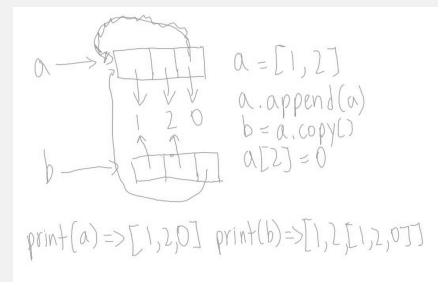 a
a = [1,2]
a.append(a)
1 2 0
b = a.copy()
b
a[2] = 0
print(a)=>[1,2,0] print(b)=>[1,2,[1,2,0]]